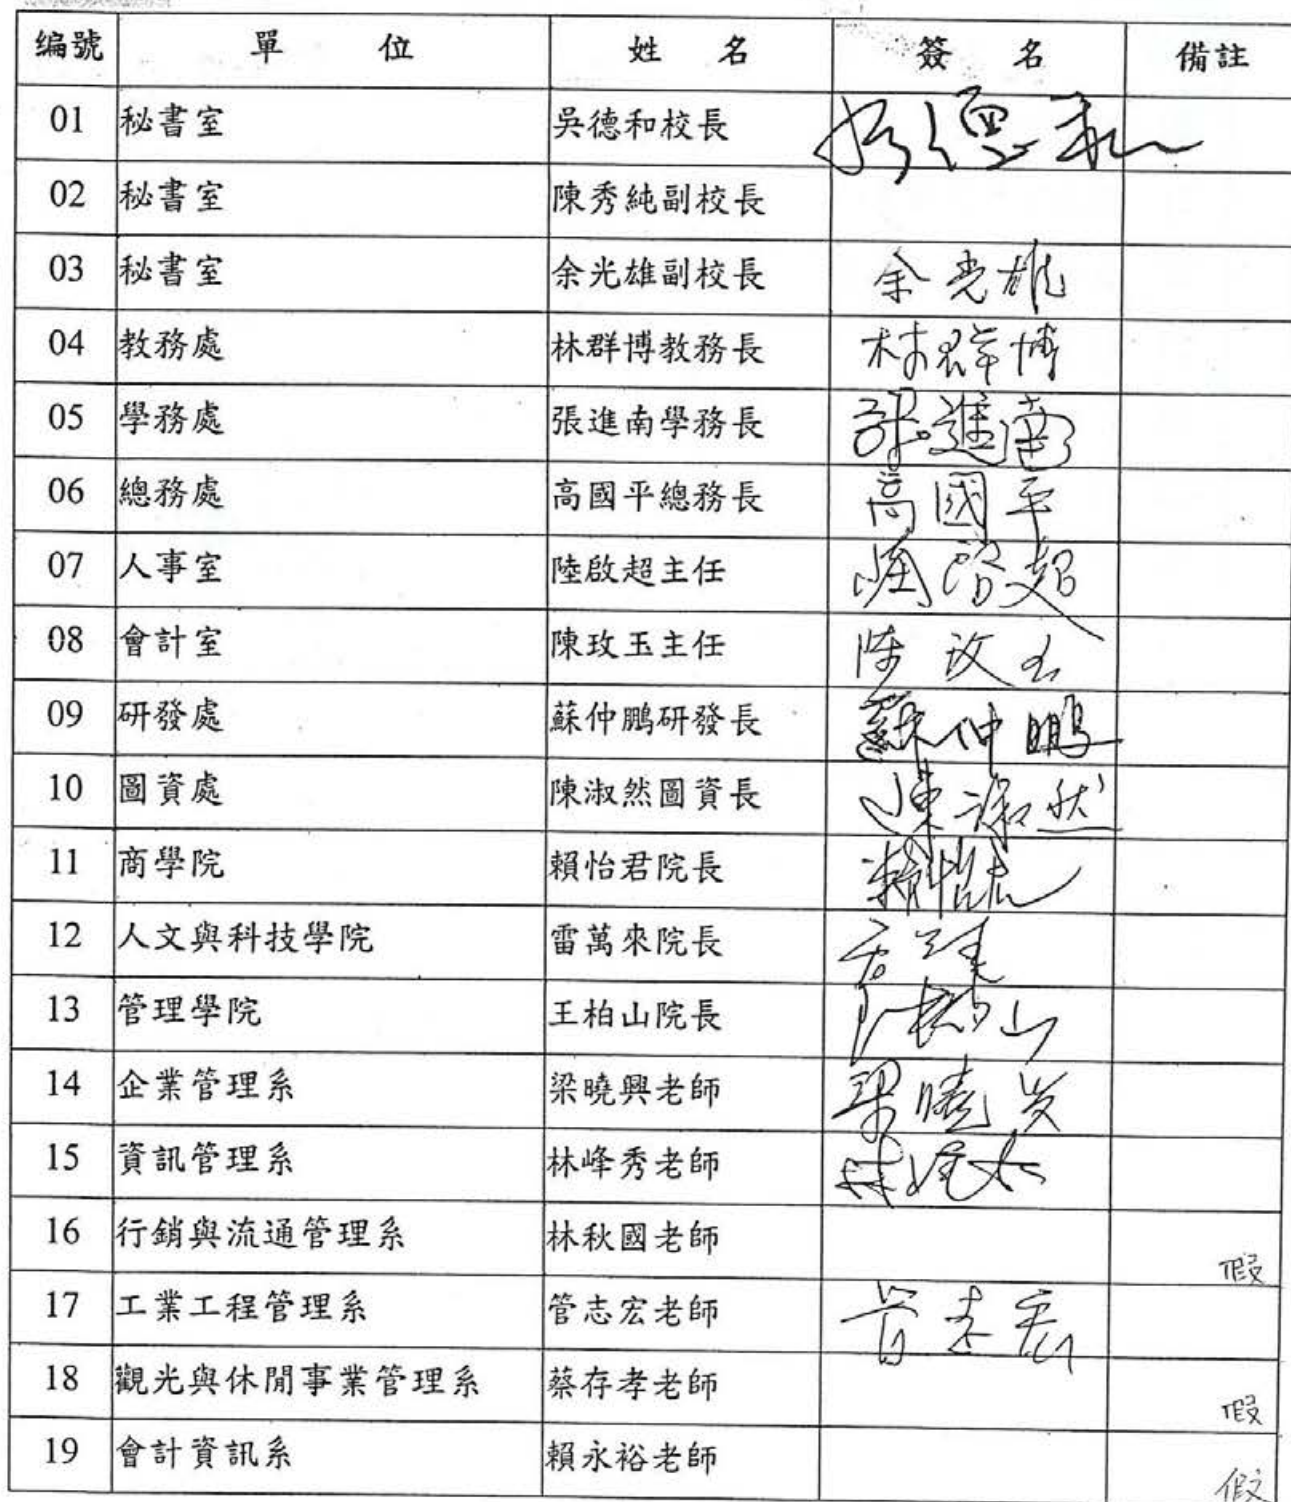 編號 單位 姓名 簽名 備註
01 秘書室 吳德和校長 吳德和
02 秘書室 陳秀純副校長
03 秘書室 余光雄副校長 余光雄
04 教務處 林群博教務長 林群博
05 學務處 張進南學務長 張進南
06 總務處 高國平總務長 高國平
07 人事室 陸啟超主任 陸啟超
08 會計室 陳玫玉主任 陳玫玉
09 研發處 蘇仲鵬研發長 蘇仲鵬
10 圖資處 陳淑然圖資長 陳淑然
11 商學院 賴怡君院長 賴怡君
12 人文與科技學院 雷萬來院長
13 管理學院 王柏山院長 王柏山
14 企業管理系 梁曉興老師 梁曉興
15 資訊管理系 林峰秀老師 林峰秀
16 行銷與流通管理系 林秋國老師 假
17 工業工程管理系 管志宏老師 管志宏
18 觀光與休閒事業管理系 蔡存孝老師 假
19 會計資訊系 賴永裕老師 假